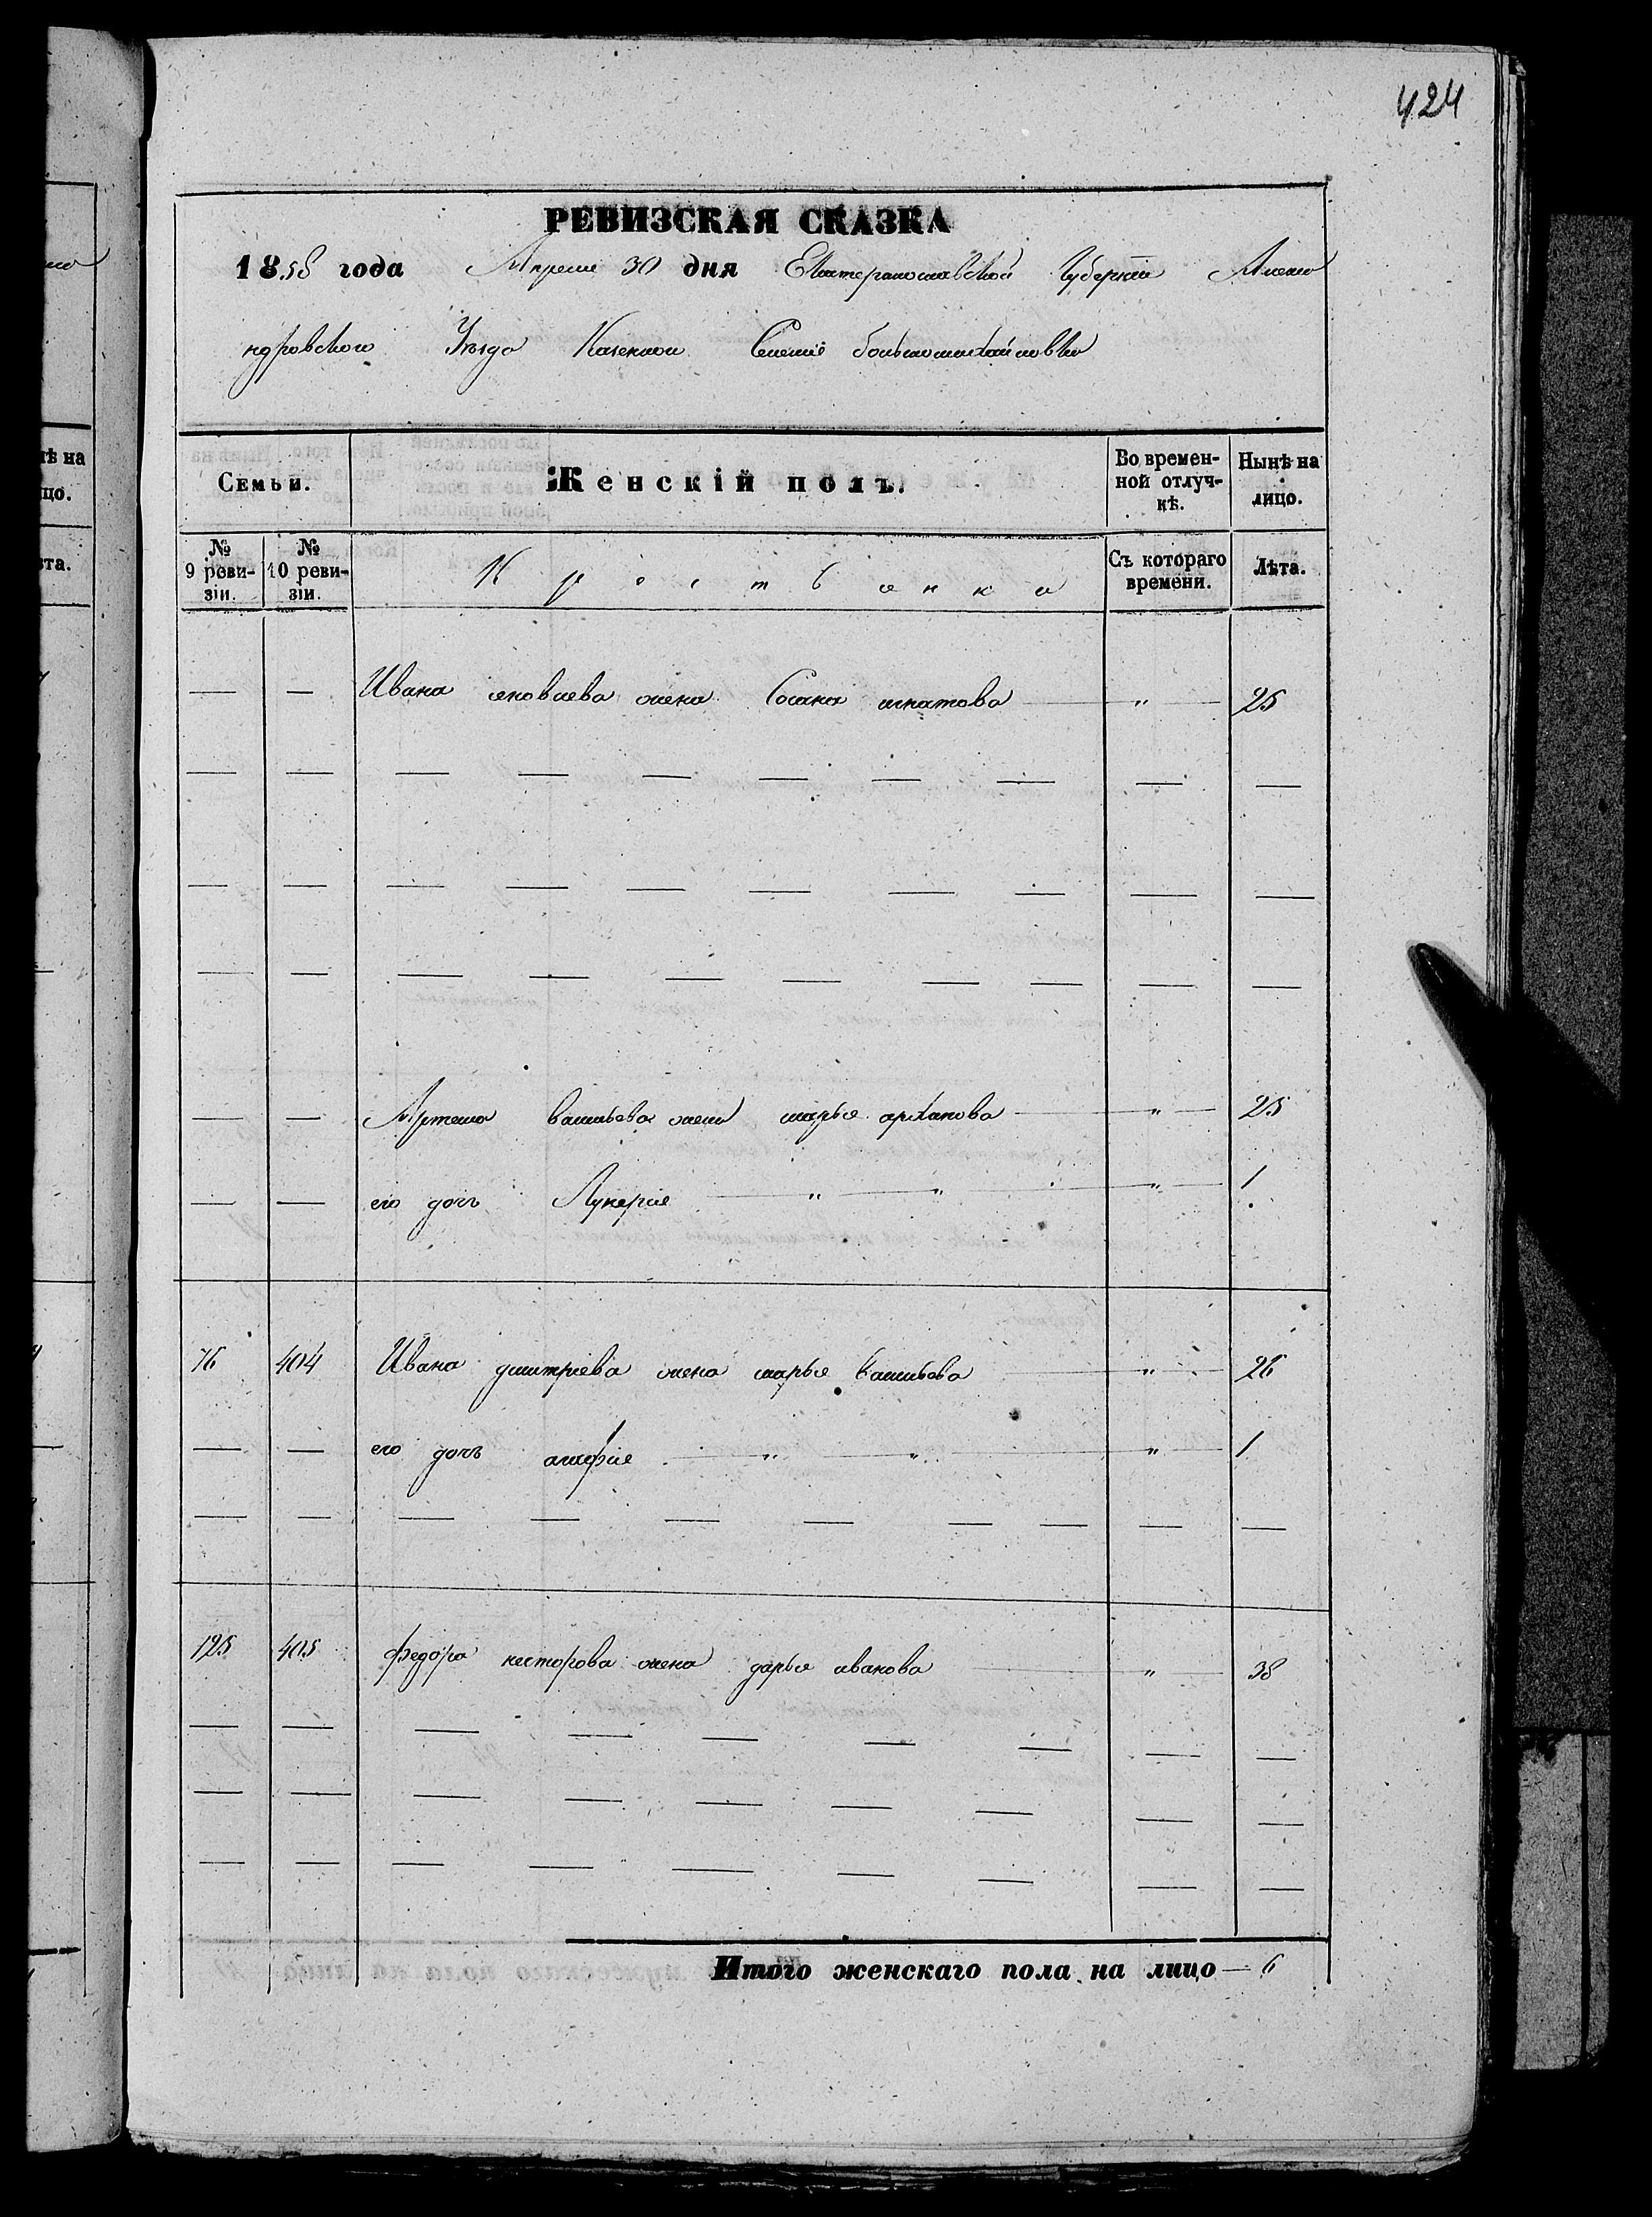 424
РЕВИЗСКАЯ СКАЗКА
1858 года Апреля 30 дня Екатеринославской Губернiи Алекса
ндровского Уезда Казенном Селенiи большемихайловки
Семьи. Женскiй полъ. Во временной отлучкѣ. Нынѣ на лицо.
№ 9 ревизiи. № 10 ревизiи. Крестьянка Съ котораго времени. Лѣта.
— — Ивана яковлева жена игнатова — " — 25
— — Артема васильева жена марья архипова — " — 25
— — его дочь Лукерiя — " — " — " — 1
76 404 Ивана дмитрiева жена марья васильева — " — 26
— — его дочь — " — " — " — 1
125 405 федора несторова жена дарья иванова — " — 38
Итого женскаго пола на лицо — 6